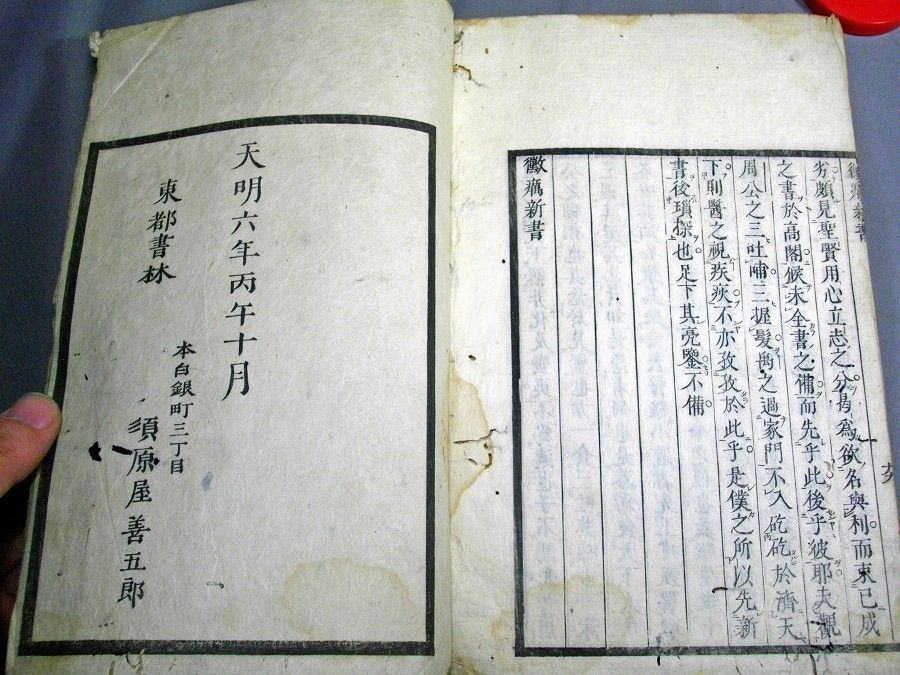 黴癘新書
劣頗見聖賢用心立志之公曷為欲名與利而束已成
之書於高閣候未全書之備而先乎此後乎彼耶夫觀
周公之三吐哺三握髮禹之過家門不入矻矻於濟天
下則醫之視疾疢不亦孜孜於此乎是僕之所以先新
書後瑣探也足下其亮鑒不備
黴癘新書
天明六年丙午十月
東都書林
本白銀町三丁目
須原屋善五郎